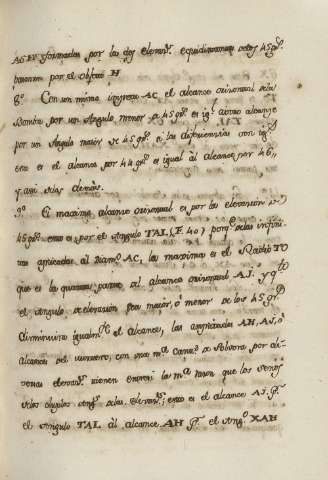 AS, EV formadas por las dos elevaŋˢ. equidistantes delos 45 gˢ.
passaran por el objeto H
8º. Con un mismo impetu AC, el alcance orisontal dela
Bomba por un Angulo menor de 45 gˢ. es igˡ. âotro alcance
por un Angulo maior de 45 gˢ. si las diferencias son igˢ
esto es el alcance por 44 gˢ. es igual al alcance por 46,
y assi delos demàs.
9º. El maximo alcance orisontal es por la elevacion de
45 gˢ. esto es por el Angulo TAL, (F. 40) porqᵉ. delas infini-
tas aplicadas al Diamᵒ. AC, la maxima es el Radio TO
que es la quarta parte del alcance orisontal AI. y qᵈᵒ
el Angulo de elevacion sea maior, ô menor de los 45 gˢ
disminuira igualmᵗᵉ. el alcance, las amplitudes AH, AI, ô
alcances del mortero, con una mᵃ. cantᵈ. de Polvora por di-
versas elevaŋˢ. tienen entresi la mᵃ. razon que los senos
delos duplos Angˢ. delas elevaŋˢ. esto es el alcance AI. pʳ.
el Angulo TAL al alcance AH pʳ. el Angº. XAH